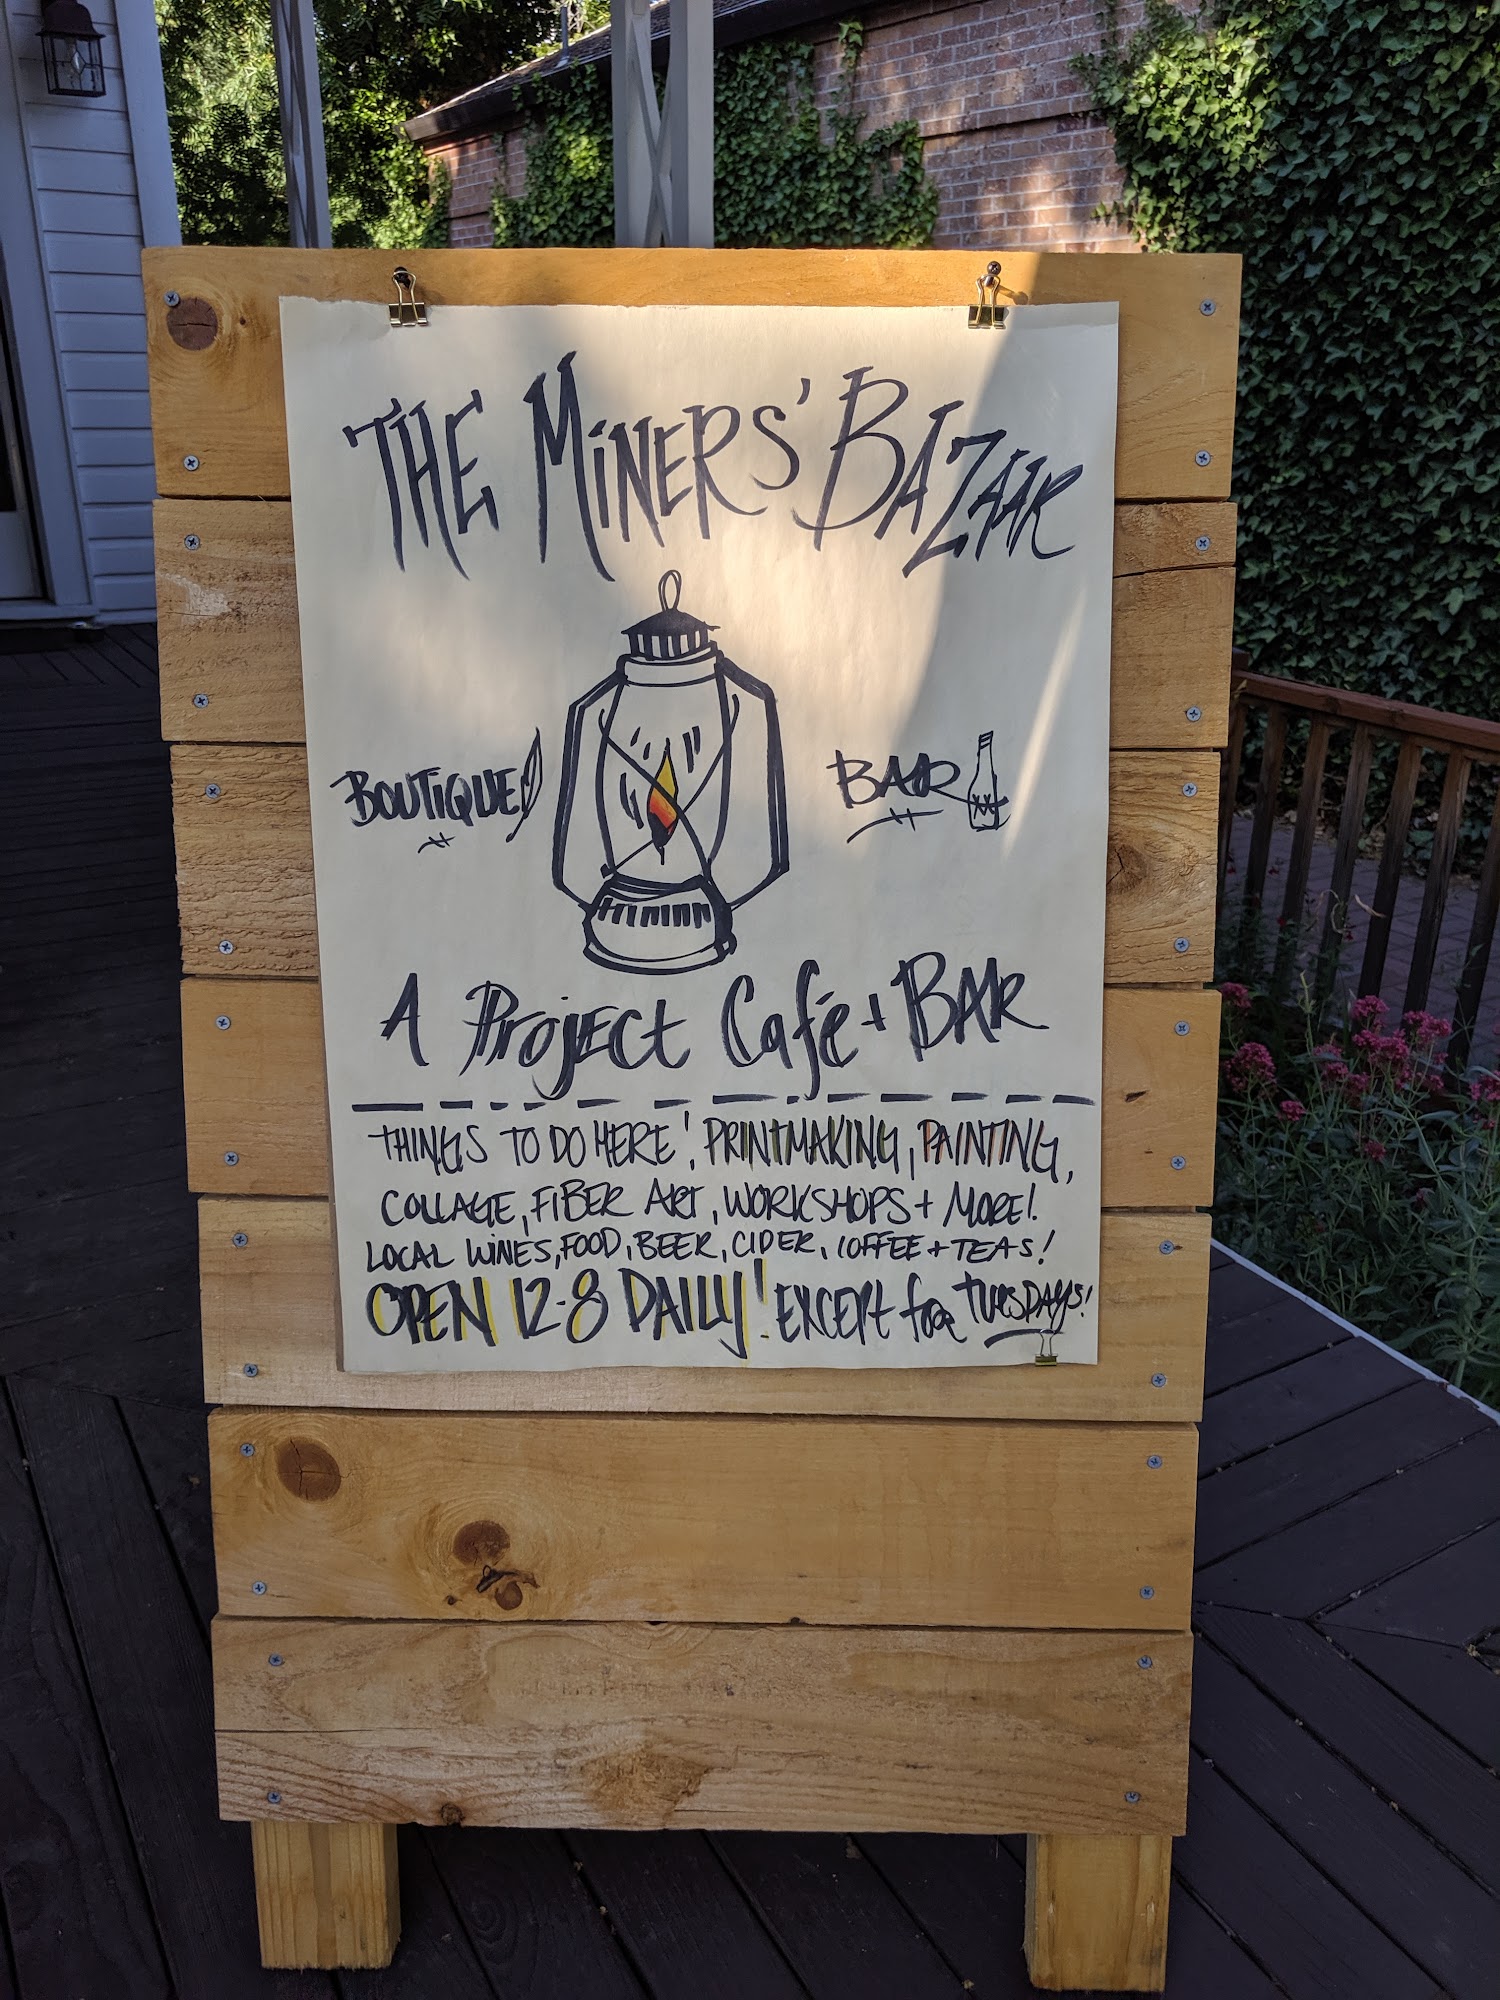 THE MiNERS' BAZAAR
BOUTiQUE
BAR
A PROJECT Café + BAR
THINGS TO DO HERE! PRINTMAKING, PAINTING,
COLLAGE, FIBER ART, WORKSHOPS + MORE!
LOCAL WiNES, FOOD, BEER, CIDER, COFFEE + TEAS!
OPEN 12-8 DAILY! EXCEPt foR TUESDAYS!